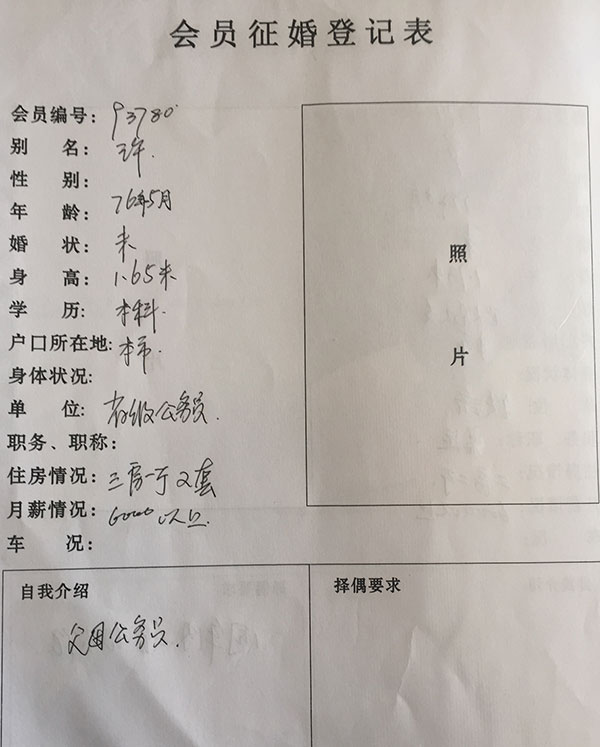 会员征婚登记表
会员编号: 93780
别 名: 许.
性 别:
年 龄: 76年5月
婚 状: 未
身 高: 1.65米
学 历: 本科.
户口所在地: 本市.
身体状况:
单 位: 省级公务员.
职务、职称:
住房情况: 三房一厅 2套
月薪情况: 6000以上.
车 况:
照
片
自我介绍
父母公务员.
择偶要求